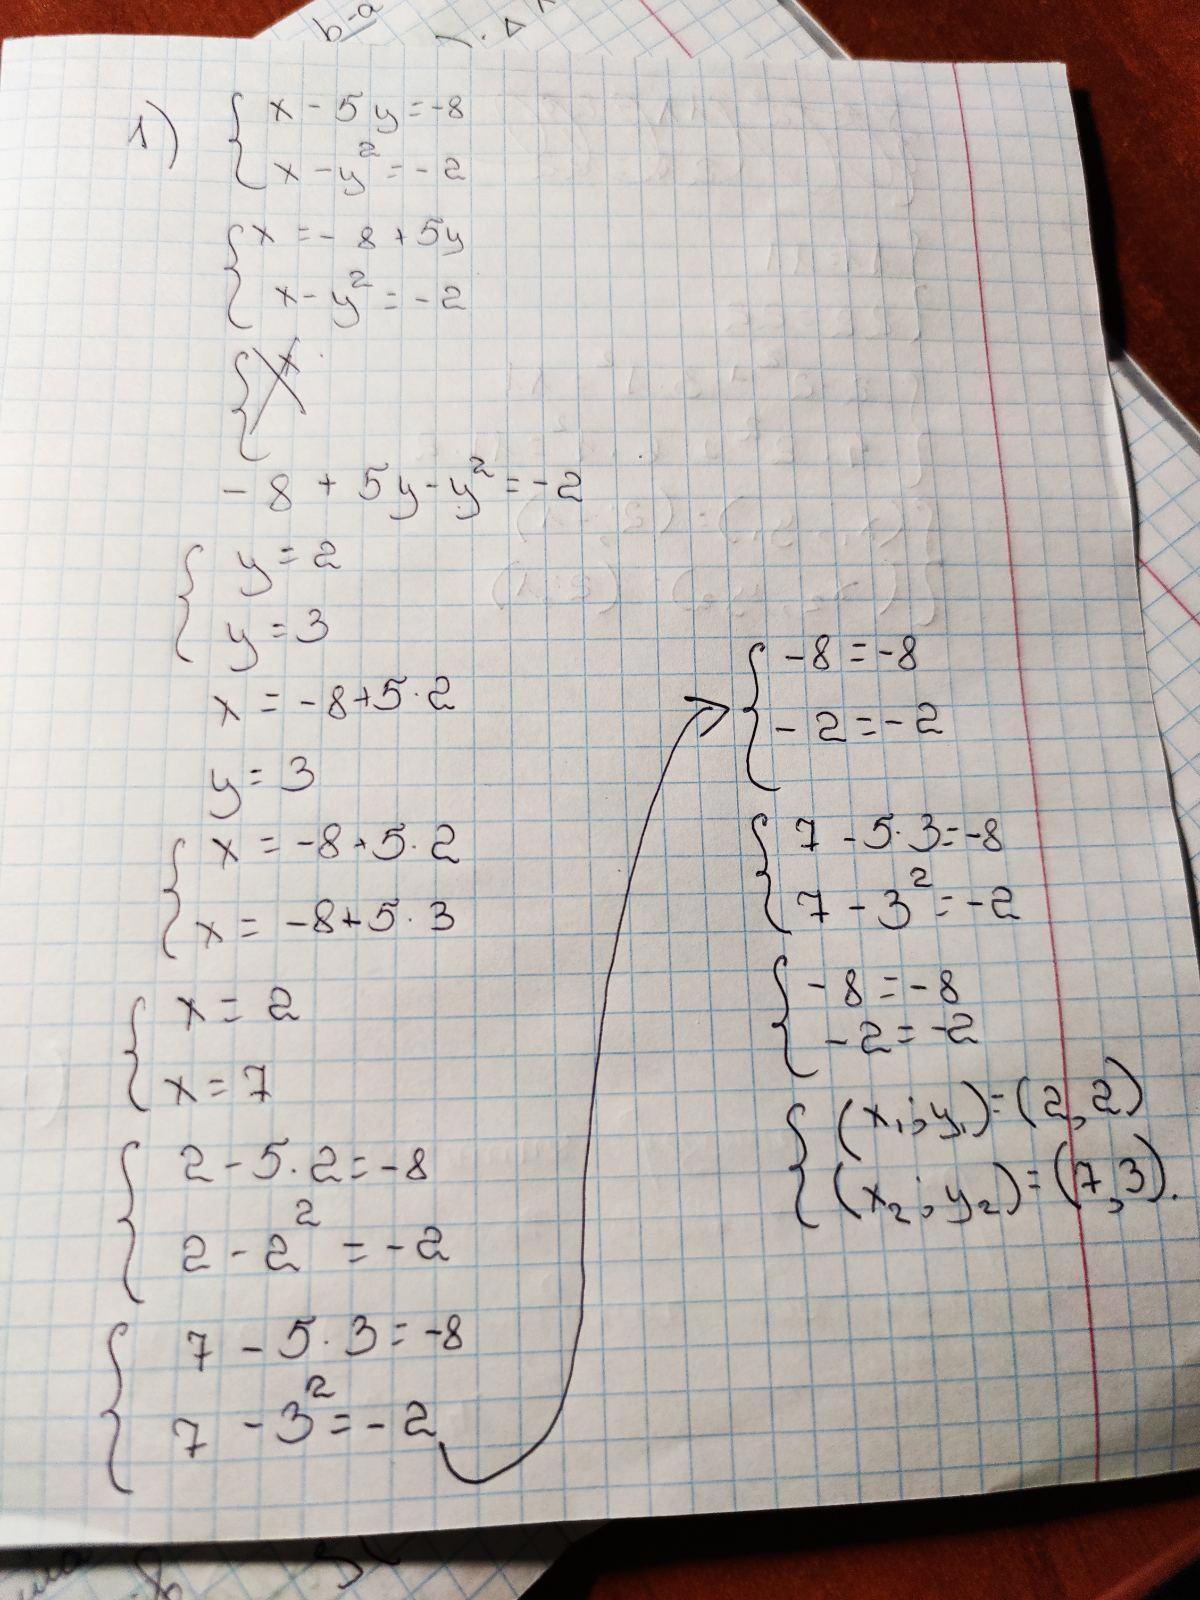 b-a
1) { x - 5y = -8
x - y² = -2
{ x = - 8 + 5y
x - y² = -2
{ x
- 8 + 5y - y² = -2
{ y = 2
y = 3
x = -8 + 5 · 2
y = 3
{ x = -8 + 5 · 2
x = -8 + 5 · 3
{ x = 2
x = 7
{ 2 - 5 · 2 = -8
2 - 2² = -2
{ 7 - 5 · 3 = -8
7 - 3² = -2
{ -8 = -8
-2 = -2
{ 7 - 5 · 3 = -8
7 - 3² = -2
{ -8 = -8
-2 = -2
{ (x₁; y₁) = (2, 2)
(x₂; y₂) = (7, 3).